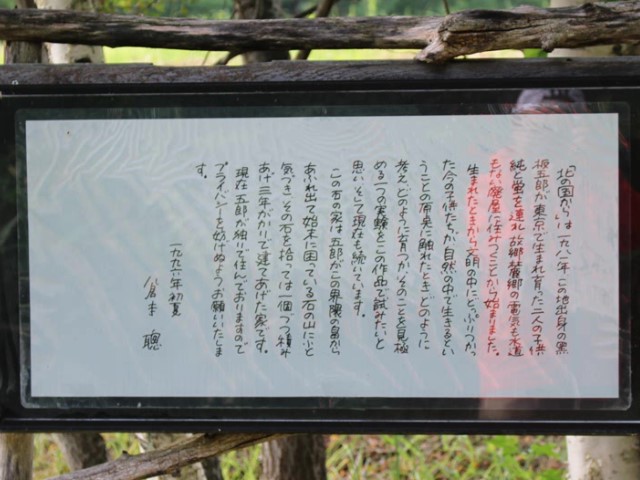 「北の国から」は一九八一年この地出身の黒
板五郎が東京で生まれ育った二人の子供
純と蛍を連れ故郷麓郷の電気も水道
もない廃屋に住みつくことから始まりました。
生まれたときから文明の中にどっぷりつかっ
た今の子供たちが自然の中で生きるとい
うことの原点に触れたときどのように
考えどのように育つかそのことを見極
める一つの実験をこの作品で試みたいと
思いそして現在も続いています。
この石の家は五郎がこの界隈の畠から
あふれ出て始末に困っている石の山にふと
気づきその石を拾っては一個づつ積み
あげ三年がかりで建てあげた家です。
現在五郎が独りで住んでおりますので
プライバシーを妨げぬようお願いいたしま
す。
一九九六年初夏
倉本 聰